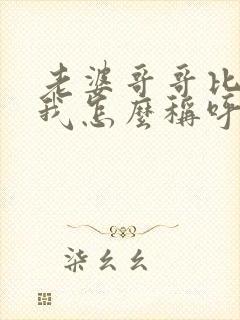 老婆哥哥比
我怎麼稱呼
柒幺幺